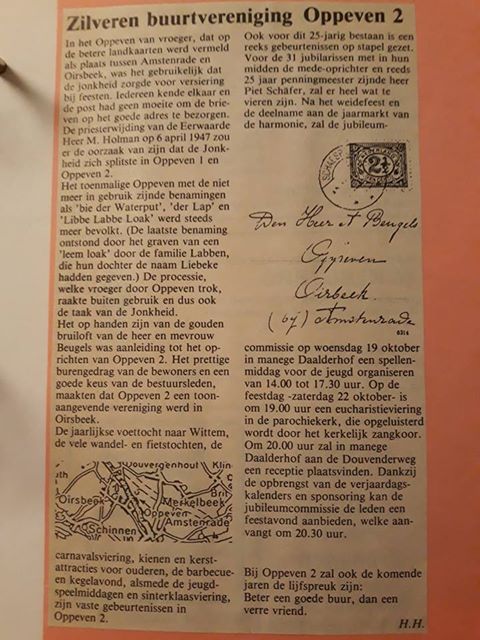 Zilveren buurtvereniging Oppeven 2
In het Oppeven van vroeger, dat op
de betere landkaarten werd vermeld
als plaats tussen Amstenrade en
Oirsbeek, was het gebruikelijk dat
de jonkheid zorgde voor versiering
bij feesten. Iedereen kende elkaar en
de post had geen moeite om de brie-
ven op het goede adres te bezorgen.
De priesterwijding van de Eerwaarde
Heer M. Holman op 6 april 1947 zou
er de oorzaak van zijn dat de Jonk-
heid zich splitste in Oppeven 1 en
Oppeven 2.
Het toenmalige Oppeven met de niet
meer in gebruik zijnde benamingen
als 'bie der Waterput', 'der Lap' en
'Libbe Labbe Loak' werd steeds
meer bevolkt. (De laatste benaming
ontstond door het graven van een
'leem loak' door de familie Labben,
die hun dochter de naam Liebeke
hadden gegeven.) De processie,
welke vroeger door Oppeven trok,
raakte buiten gebruik en dus ook
de taak van de Jonkheid.
Het op handen zijn van de gouden
bruiloft van de heer en mevrouw
Beugels was aanleiding tot het op-
richten van Oppeven 2. Het prettige
burengedrag van de bewoners en een
goede keus van de bestuursleden,
maakten dat Oppeven 2 een toon-
aangevende vereniging werd in
Oirsbeek.
De jaarlijkse voettocht naar Wittem,
de vele wandel- en fietstochten, de
Douvergenhout Klin
ith
Oirsbeek
Brit
Merkelbeek
Oppeven
Amstenrade
Schinnen
carnavalsviering, kienen en kerst-
attracties voor ouderen, de barbecue-
en kegelavond, alsmede de jeugd-
speelmiddagen en sinterklaasviering,
zijn vaste gebeurtenissen in
Oppeven 2.
Ook voor dit 25-jarig bestaan is een
reeks gebeurtenissen op stapel gezet.
Voor de 31 jubilarissen met in hun
midden de mede-oprichter en reeds
25 jaar penningmeester zijnde heer
Piet Schäfer, zal er heel wat te
vieren zijn. Na het weidefeest en
de deelname aan de jaarmarkt van
de harmonie, zal de jubileum-
2½
Den Heer A Beugels
Oirbeek
(bij) Amstenrade
6314
commissie op woensdag 19 oktober
in manege Daalderhof een spellen-
middag voor de jeugd organiseren
van 14.00 tot 17.30 uur. Op de
feestdag -zaterdag 22 oktober- is
om 19.00 uur een eucharistieviering
in de parochiekerk, die opgeluisterd
wordt door het kerkelijk zangkoor.
Om 20.00 uur zal in manege
Daalderhof aan de Douvenderweg
een receptie plaatsvinden. Dankzij
de opbrengst van de verjaardags-
kalenders en sponsoring kan de
jubileumcommissie de leden een
feestavond aanbieden, welke aan-
vangt om 20.30 uur.
Bij Oppeven 2 zal ook de komende
jaren de lijfspreuk zijn:
Beter een goede buur, dan een
verre vriend.
H.H.